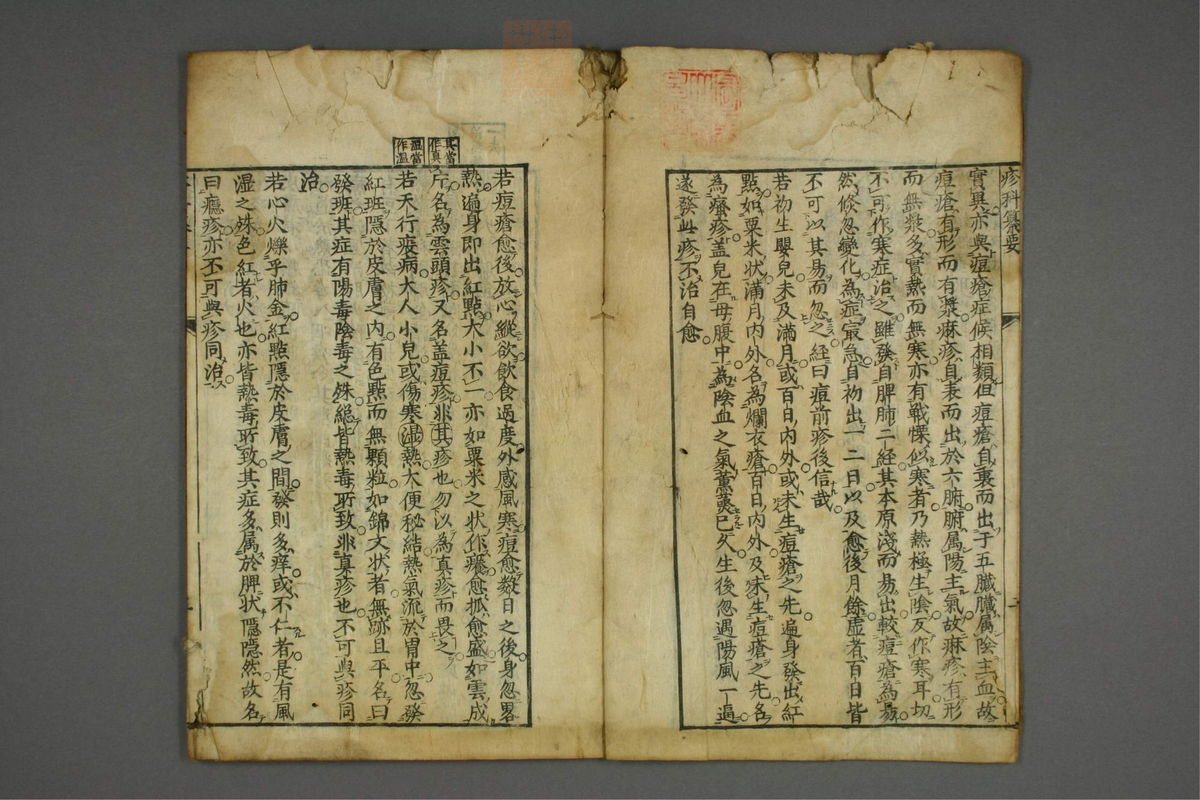 疹科纂要
實異亦與痘瘡症候相類但痘瘡自裏而出于五臟臟属陰主血故
痘瘡有形而有漿麻疹自表而出於六腑腑属陽主氣故麻疹有形
而無漿多實熱而無寒亦有戰慄似寒者乃熱極生陰反作寒耳切
不可作寒症治之雖發自脾肺二經其本原淺而易出較痘瘡為易
然倏忽變化為症㝡急自初出一二日以及愈後月餘虚者百日皆
不可以其易而忽之經曰痘前疹後信哉
若初生嬰兒未及滿月或百日内外或未生痘瘡之先遍身發出紅
點如粟米状滿月内外名為爛衣瘡百日内外及未生痘瘡之先名
為瘙疹盖兒在母腹中為陰血之氣薰蒸已久生後忽遇陽風一逼
遂發此疹不治自愈
若痘瘡愈後放心縱欲飲食過度外感風寒痘愈数日之後身忽畧
熱遍身即出紅點大小不一亦如粟米之状作癢愈抓愈盛如雲成
片名為雲頭疹又名盖痘疹非其疹也勿以為真疹而畏之
其當作真
若天行疫病大人小兒或傷寒湿熱大便秘結熱氣流於胃中忽發
湿當作温
紅班隠於皮膚之内有色點而無顆粒如錦文状者無跡且平名曰
發班其症有陽毒陰毒之殊総皆熱毒所致非真疹也不可與疹同
治
若心火爍乎肺金紅點隠於皮膚之間發則多痒或不仁者是有風
湿之殊色紅者火也亦皆熱毒所致其症多属於脾状隠隠然故名
曰癮疹亦不可與疹同治